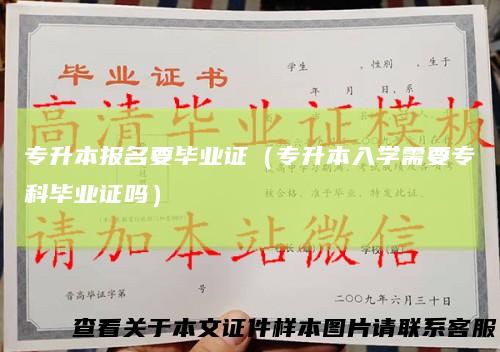 毕业证书
学生 ，性别 ，生于
年 月 日，系
高清毕业证模板
专升本报名要毕业证（专升本入学需要专
科毕业证吗）
核合格，准予毕业，特发此证。
请加本站微信
学校（章）
普高毕证字第 号
二〇〇九年六月三十日
查看关于本文证件样本图片请联系客服